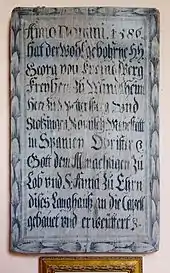 Anno Domini. 1586.
hat der Wohlgebohrne HH
Georg von Freundsberg
Freyherr zu Mindlheim
Herr zu Petersberg Vnd
Stortzingen Königlich Mayestätt
in Spanien Obrister &
Gott dem Allmächtigen zu
Lob und S. Anna zu Ehrn
dises Langhauß an die Capell
gebauet und erweittert &.